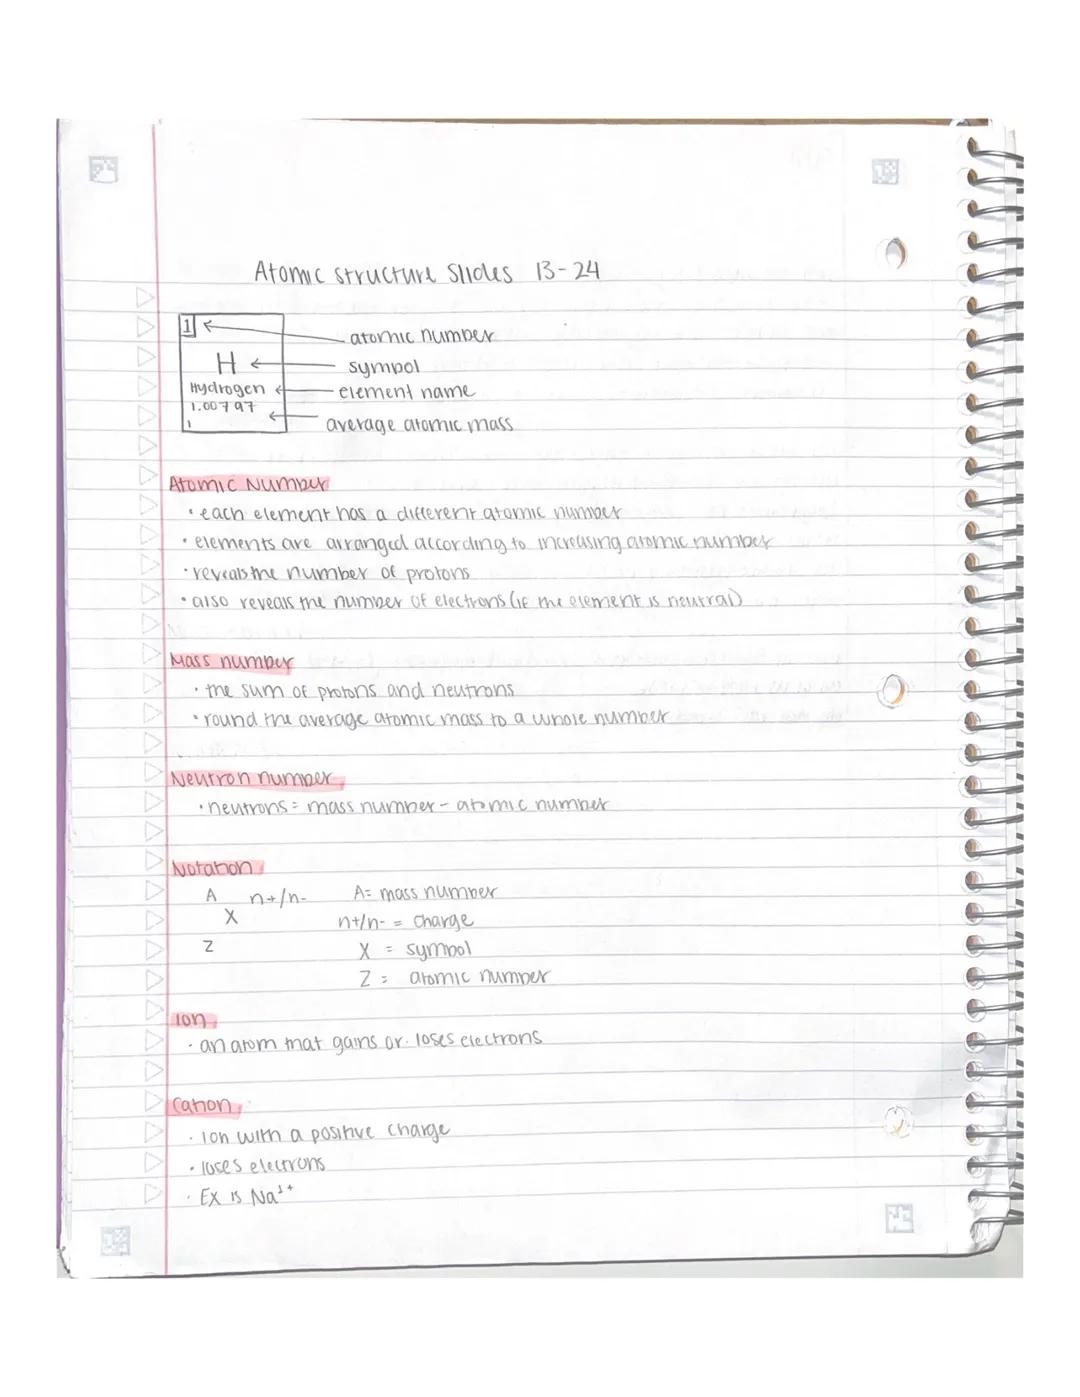 Atomic structure Slides 13-24
1
atomic number
H
symbol
Hydrogen
element name
1.00797
average atomic mass
1
Atomic Number
• each element has a different atomic number
• elements are arranged according to increasing atomic number
• reveals the number of protons
• also reveals the number of electrons (if the element is neutral)
Mass number
• the sum of protons and neutrons
• round the average atomic mass to a whole number
Neutron number
• neutrons = mass number - atomic number
Notation
A n+/n- A = mass number
X n+/n- = charge
Z X = symbol
Z = atomic number
Ion
• an atom that gains or loses electrons
Cation
• Ion with a positive charge
• loses electrons
• Ex is Na¹⁺